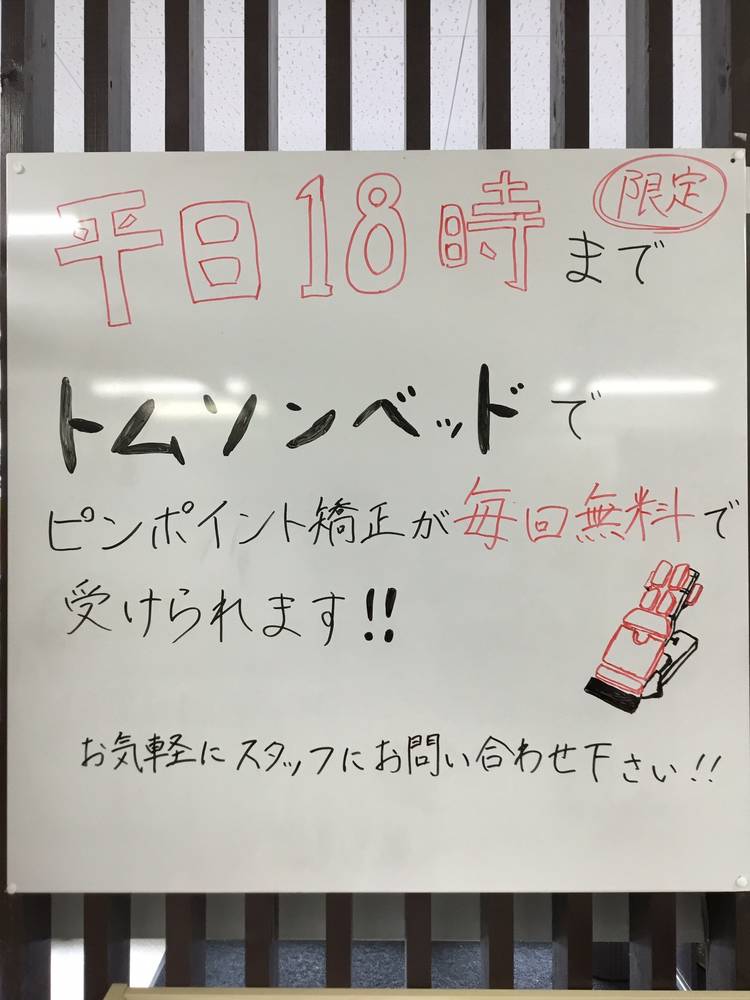 限定
平日18時まで
トムソンベッドで
ピンポイント矯正が毎回無料で
受けられます!!
お気軽にスタッフにお問い合わせ下さい!!